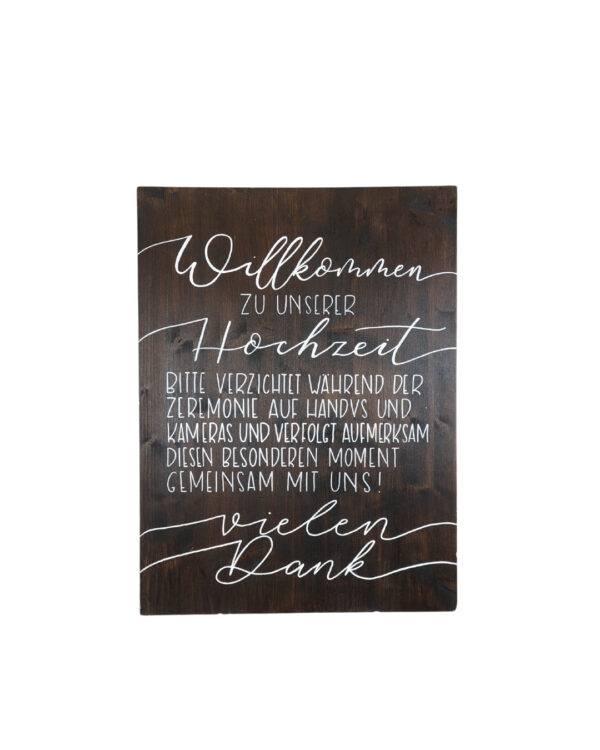 Willkommen
ZU UNSERER
Hochzeit
BITTE VERZICHTET WÄHREND DER
ZEREMONIE AUF HANDYS UND
KAMERAS UND VERFOLGT AUFMERKSAM
DIESEN BESONDEREN MOMENT
GEMEINSAM MIT UNS!
vielen
Dank